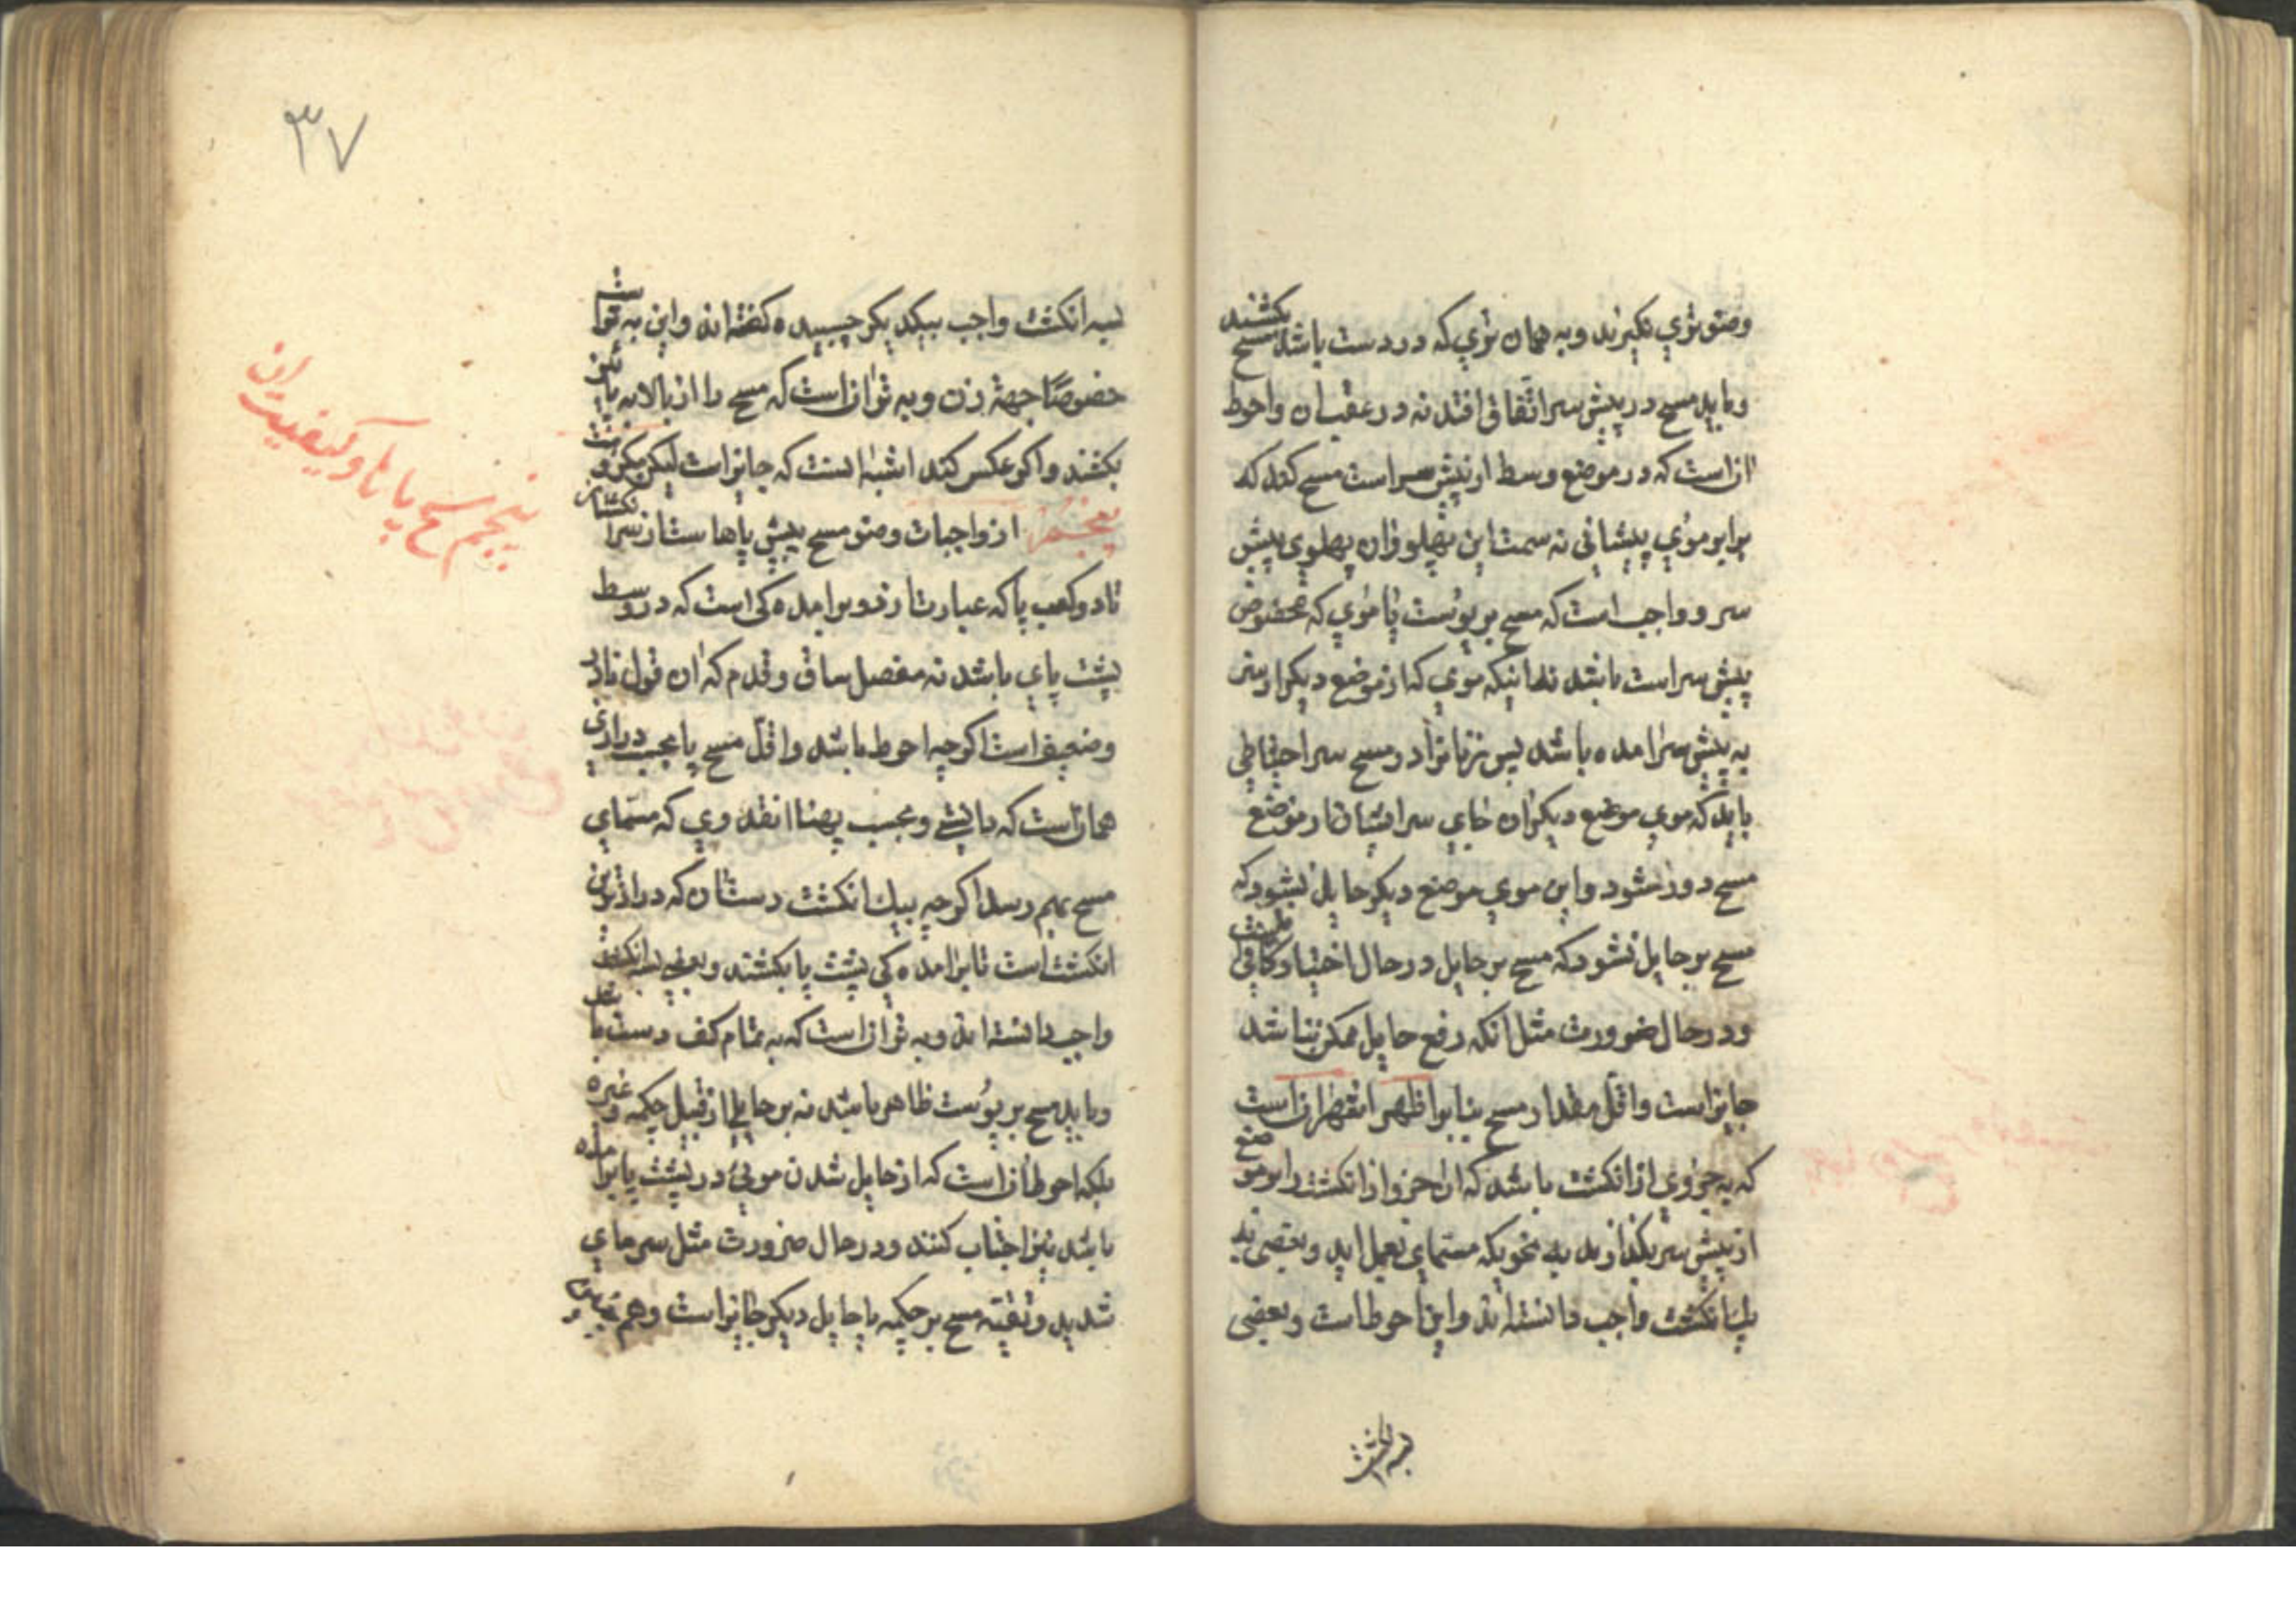 وضو تری نکیرند و به همان تری که در دست باشد مسح بکشند
و باید مسح در پیش سر اتفاق افتد نه در عقب ان و احوط
ان است که در موضع وسط از پیش سر است مسح کند که
برابر موی پیشانی نه سمت این پهلو و ان پهلوی پیش
سر و واجب است که مسح بر پوست یا موی که مخصوص
پیش سر است باشد نه اینکه موی که از موضع دیکر از سر
به پیش سر امده باشد پس زنانرا در مسح سر احتیاطی
باید که موی موضع دیکران جای سر ایشان از موضع
مسح دور شود و این موی موضع دیکر حایل نشود که
مسح بر حایل نشود که مسح بر حایل در حال اختیار کافی نیست
و در حال ضرورت مثل انکه رفع حایل ممکن نباشد
جایز است و اقل مقدار مسح بنا بر اظهر اشهر ان است
که به جزوی از انکشت باشد که ان جزو از انکشت را بر موضع
از پیش سر بکذارند به نحویکه مسمای بعمل اید و بعضی به
یک انکشت واجب دانسته اند و این احوط است و بعضی
بسه انکشت
۳۷
بسه انکشت واجب بیکدیکر چسبیده کفته اند و این بهتر است
خصوصًا جهة زن و بهتر ان است که مسح را از بالا به پائین
بکشند و اکر عکس کند اشبه انست که جایز است لیکن مکروه است
پنجم از واجبات وضو مسح پیش پاها ست از سر انکشتان
تا دو کعب پا که عبارت از دو برامده کی است که در وسط
پشت پای باشد نه مفصل ساق و قدم که ان قول نادر
و ضعیف است اکرچه احوط باشد و اقل مسح پا بحسب درازی
همان است که دانستی و بحسب پهنا انقدری که مسمای
مسح بهم رسد اکرچه بیک انکشت دستان که درازترین
انکشت است تا برامده کی پشت پا بکشند و بعضی بسه انکشت
واجب دانسته اند و بهتر ان است که به تمام کف دست باشد
و باید مسح بر پوست ظاهر باشد نه بر حایلی از قبیل چکمه و غیره
بلکه احوط ان است که از حایل شدن موئی در پشت پا برامده
باشد نیز اجتناب کنند و در حال ضرورت مثل سرمای
شدید و تقیه مسح بر چکمه یا حایل دیکر جایز است و هم
پنجم مسح پاها و کیفیت ان